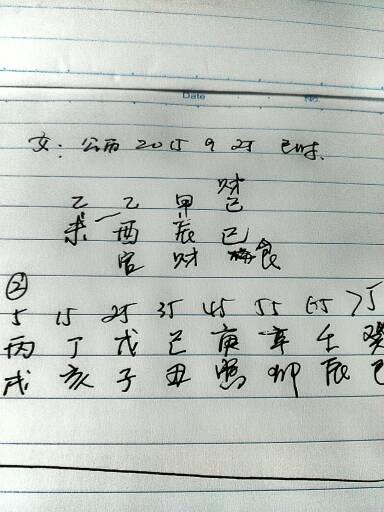 Date No.
女: 公历 2015 9 25 巳时.
财
乙 乙 甲 己
未 酉 辰 巳
官 财 食
②
5 15 25 35 45 55 65 75
丙 丁 戊 己 庚 辛 壬 癸
戌 亥 子 丑 寅 卯 辰 巳